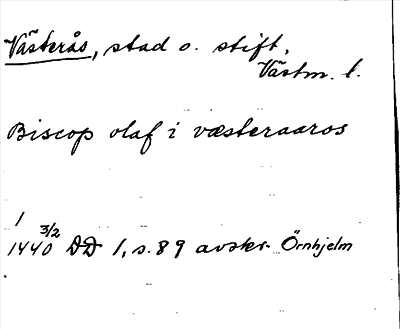 Västerås, stad o. stift,
Västm. l.
Biscop olaf i væsteraaros
1
1440 3/2 DD 1, s. 89 avskr. Örnhjelm